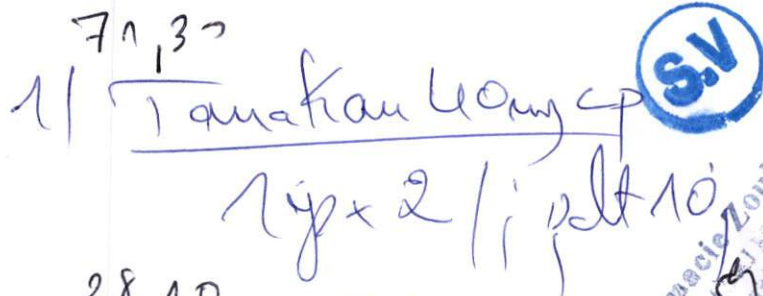 71,30
1/ Tanakan 40mg cp
S.V
1cp x 2 / j pdt 10j
28,10